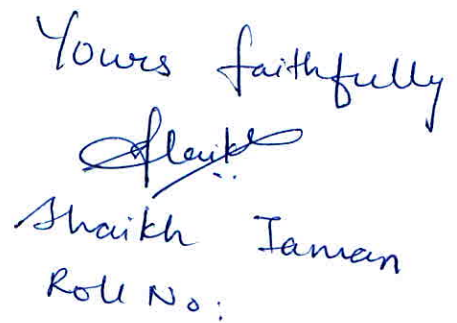 Yours faithfully
Shaikh
Shaikh Iaman
Roll No: